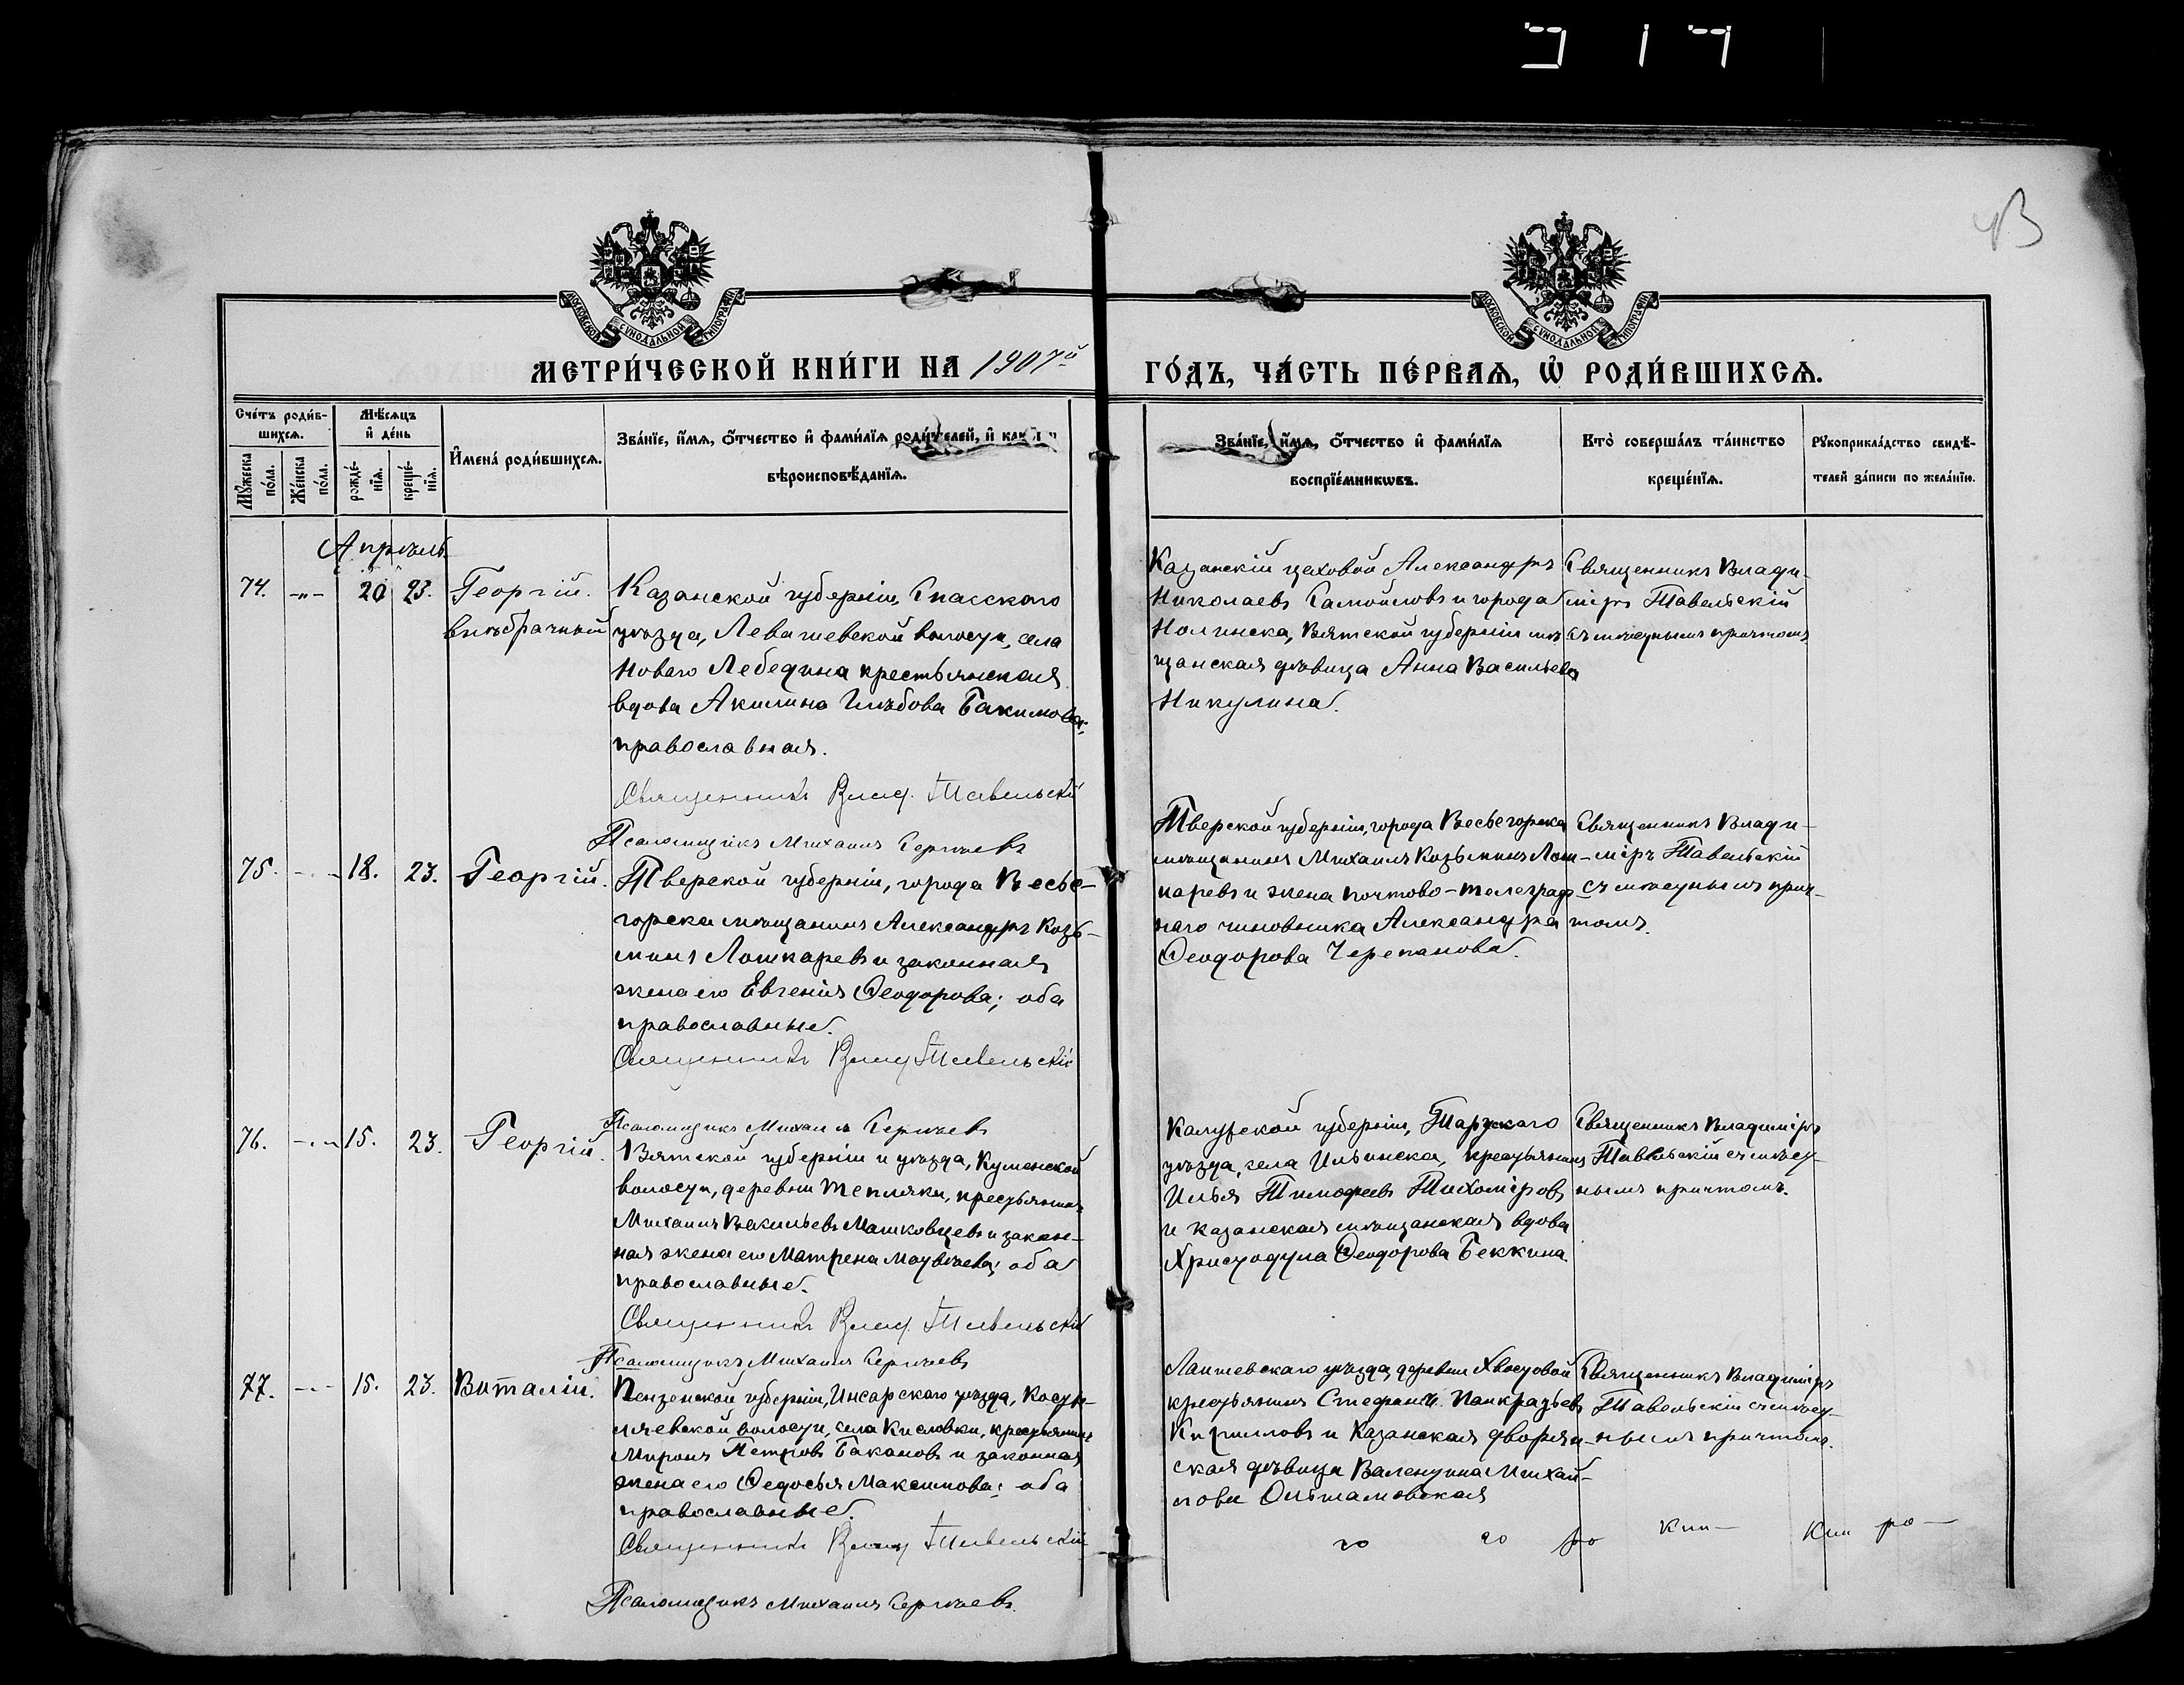 43
МОСКОВСКОЙ СУНОДАЛЬНОЙ ТИПОГРАФІИ
МОСКОВСКОЙ СУНОДАЛЬНОЙ ТИПОГРАФІИ
МЕТРИ́ЧЕСКОЙ КНИ́ГИ НА 1907й
ГО́ДЪ, ЧА́СТЬ ПЕ́РВАѦ, Ѡ҆ РОДИ́ВШИХСѦ.
Сче́тъ роди́в-
шихсѧ.
Мꙋ́жеска по́ла.
Же́нска по́ла.
Мѣ́сѧцъ
и҆ де́нь
рожде́-
нїѧ.
креще́-
нїѧ.
И҆мена̀ роди́вшихсѧ.
Зва́нїе, и҆́мѧ, ѻ҆́тчество и҆ фами́лїѧ роди́телей, и҆
вѣроисповѣ́данїѧ.
Зва́нїе, и҆́мѧ, ѻ҆́тчество и҆ фами́лїѧ
воспрїе́мникѡвъ.
Кто̀ соверша́лъ та́инство
креще́нїѧ.
Рꙋкоприкла́дство свидѣ́-
телей за́писи по жела́нїю.
Апрѣль
74. -"- 20 23. Георгій.
внѣбрачный
Казанской губерніи, Спасскаго
уѣзда, Левашевской волости, села
Новаго Лебедина крестьянская
вдова Акилина Глѣбова Бакимова;
православная.
Священникъ Влад. Тавельскій
Псаломщикъ Михаилъ Сергѣевъ
Казанскій цеховой Александръ
Николаевъ Самойловъ и города
Нолинска, Вятской губерніи мѣ
щанская дѣвица Анна Васильева
Никулина.
Священникъ Влади-
міръ Тавельскій
съ мѣстнымъ причтомъ
75. - . - 18. 23. Георгій.
Тверской губерніи, города Весье-
горска мѣщанинъ Александръ Козь-
минъ Лошкаревъ и законная
жена его Евгенія Ѳеодорова; оба
православные.
Священникъ Влад Тавельскій
Псаломщикъ Михаилъ Сергѣевъ
Тверской губерніи, города Весьегорска
мѣщанинъ Михаилъ Козьминъ Лош-
каревъ и жена почтово-телеграф-
наго чиновника Александра
Ѳеодорова Черепанова.
Священникъ Влади-
міръ Тавельскій
съ мѣстнымъ прич-
томъ.
76. - . - 15. 23. Георгій.
Вятской губерніи и уѣзда, Куменской
волости, деревни Тепляки, крестьянинъ
Михаилъ Васильевъ Машковцевъ и закон-
ная жена его Матрена Матвѣева; оба
православные.
Священникъ Влад. Тавельскій
Псаломщикъ Михаилъ Сергѣевъ
Калужской губерніи, Тарускаго
уѣзда, села Ильинска, крестьянинъ
Илья Тимофеевъ Тихоміровъ
и казанская мѣщанская вдова
Христодула Ѳеодорова Беккина.
Священникъ Владиміръ
Тавельскій съ мѣст-
нымъ причтомъ.
77. - . - 15. 23. Виталій.
Пензенской губерніи, Инсарскаго уѣзда,
волости, села Кисловки, крестьянинъ
Миронъ Петровъ Бакановъ и законная
жена его Ѳедосья Максимова; оба
православные.
Священникъ Влад Тавельскій
Псаломщикъ Михаилъ Сергѣевъ.
Лаишевскаго уѣзда, деревни Хвостовой
крестьянинъ Стефанъ Панкратьевъ
Кирилловъ и Казанская дворян-
ская дѣвица Валентина Михай-
лова
Священникъ Владиміръ
Тавельскій съ мѣст-
нымъ причтомъ.